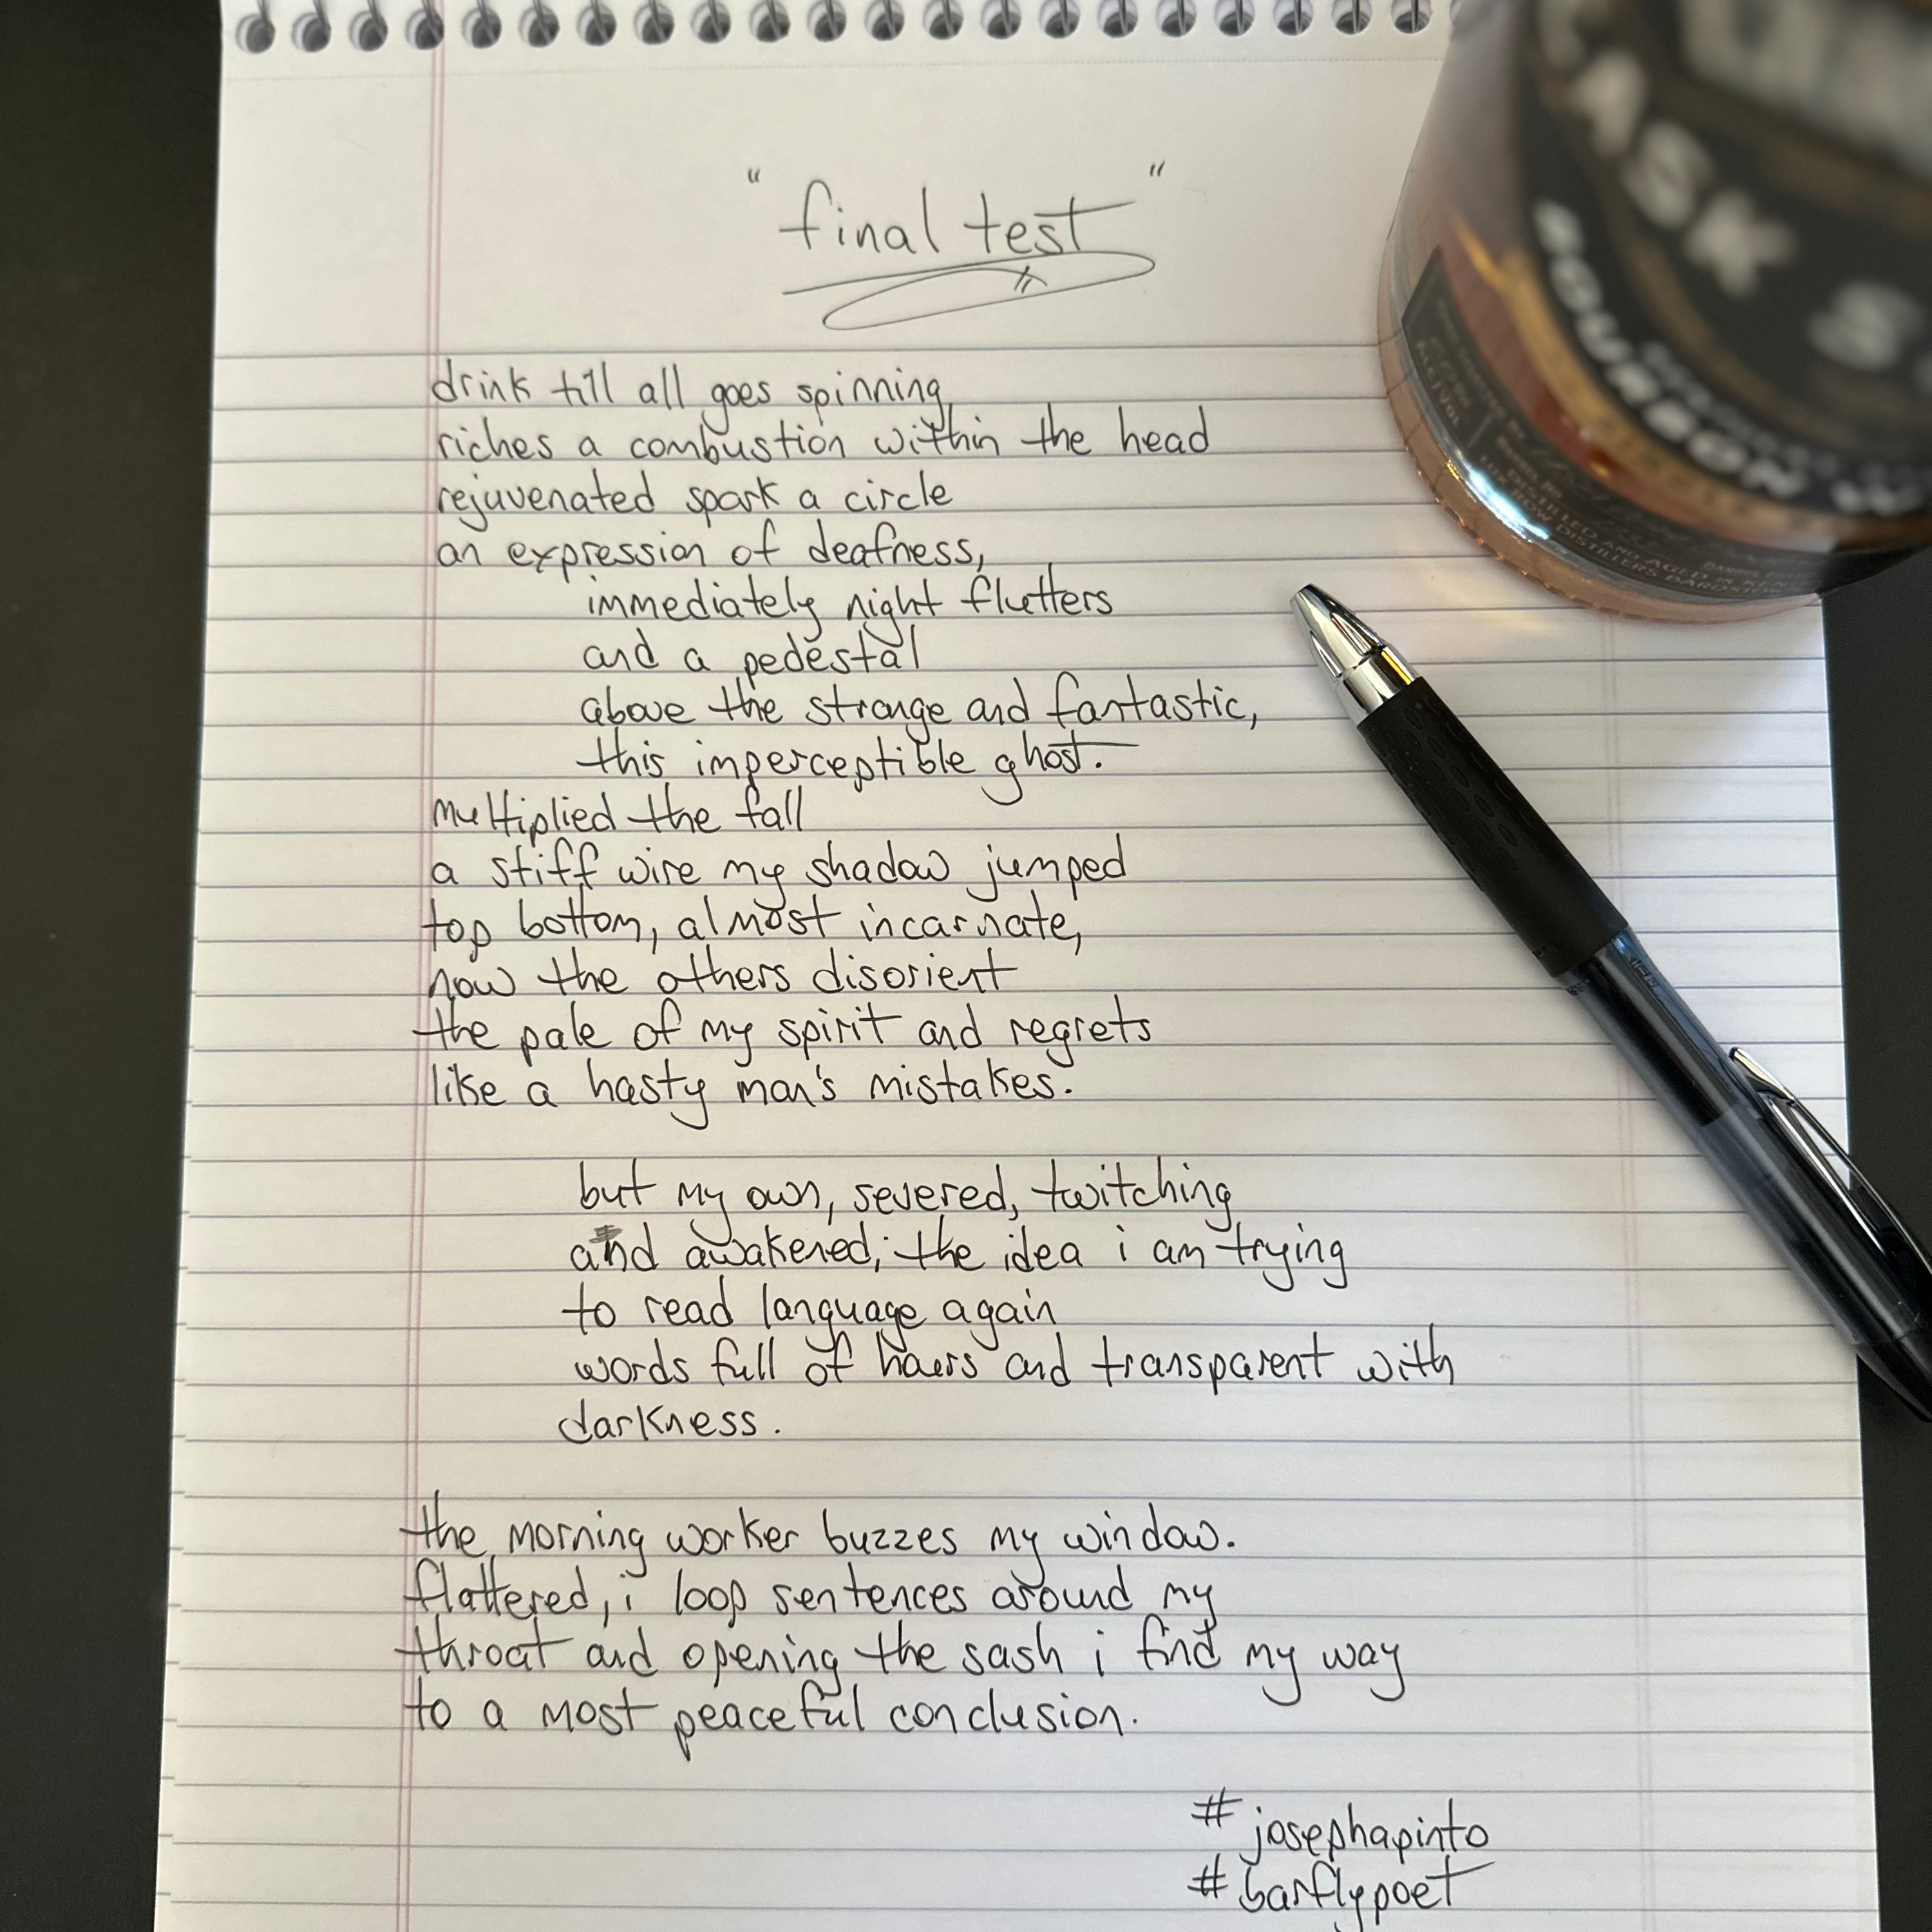 "final test"
drink till all goes spinning,
riches a combustion within the head
rejuvenated spark a circle
an expression of deafness,
immediately night flutters
and a pedestal
above the strange and fantastic,
this imperceptible ghost.
multiplied the fall
a stiff wire my shadow jumped
top bottom, almost incarnate,
now the others disorient
the pale of my spirit and regrets
like a hasty man's mistakes.
but my own, severed, twitching
and awakened; the idea i am trying
to read language again
words full of and transparent with
darkness.
the morning worker buzzes my window.
flattered, i loop sentences around my
throat and opening the sash i find my way
to a most peaceful conclusion.
#josephapinto
#barflypoet
BOURBON